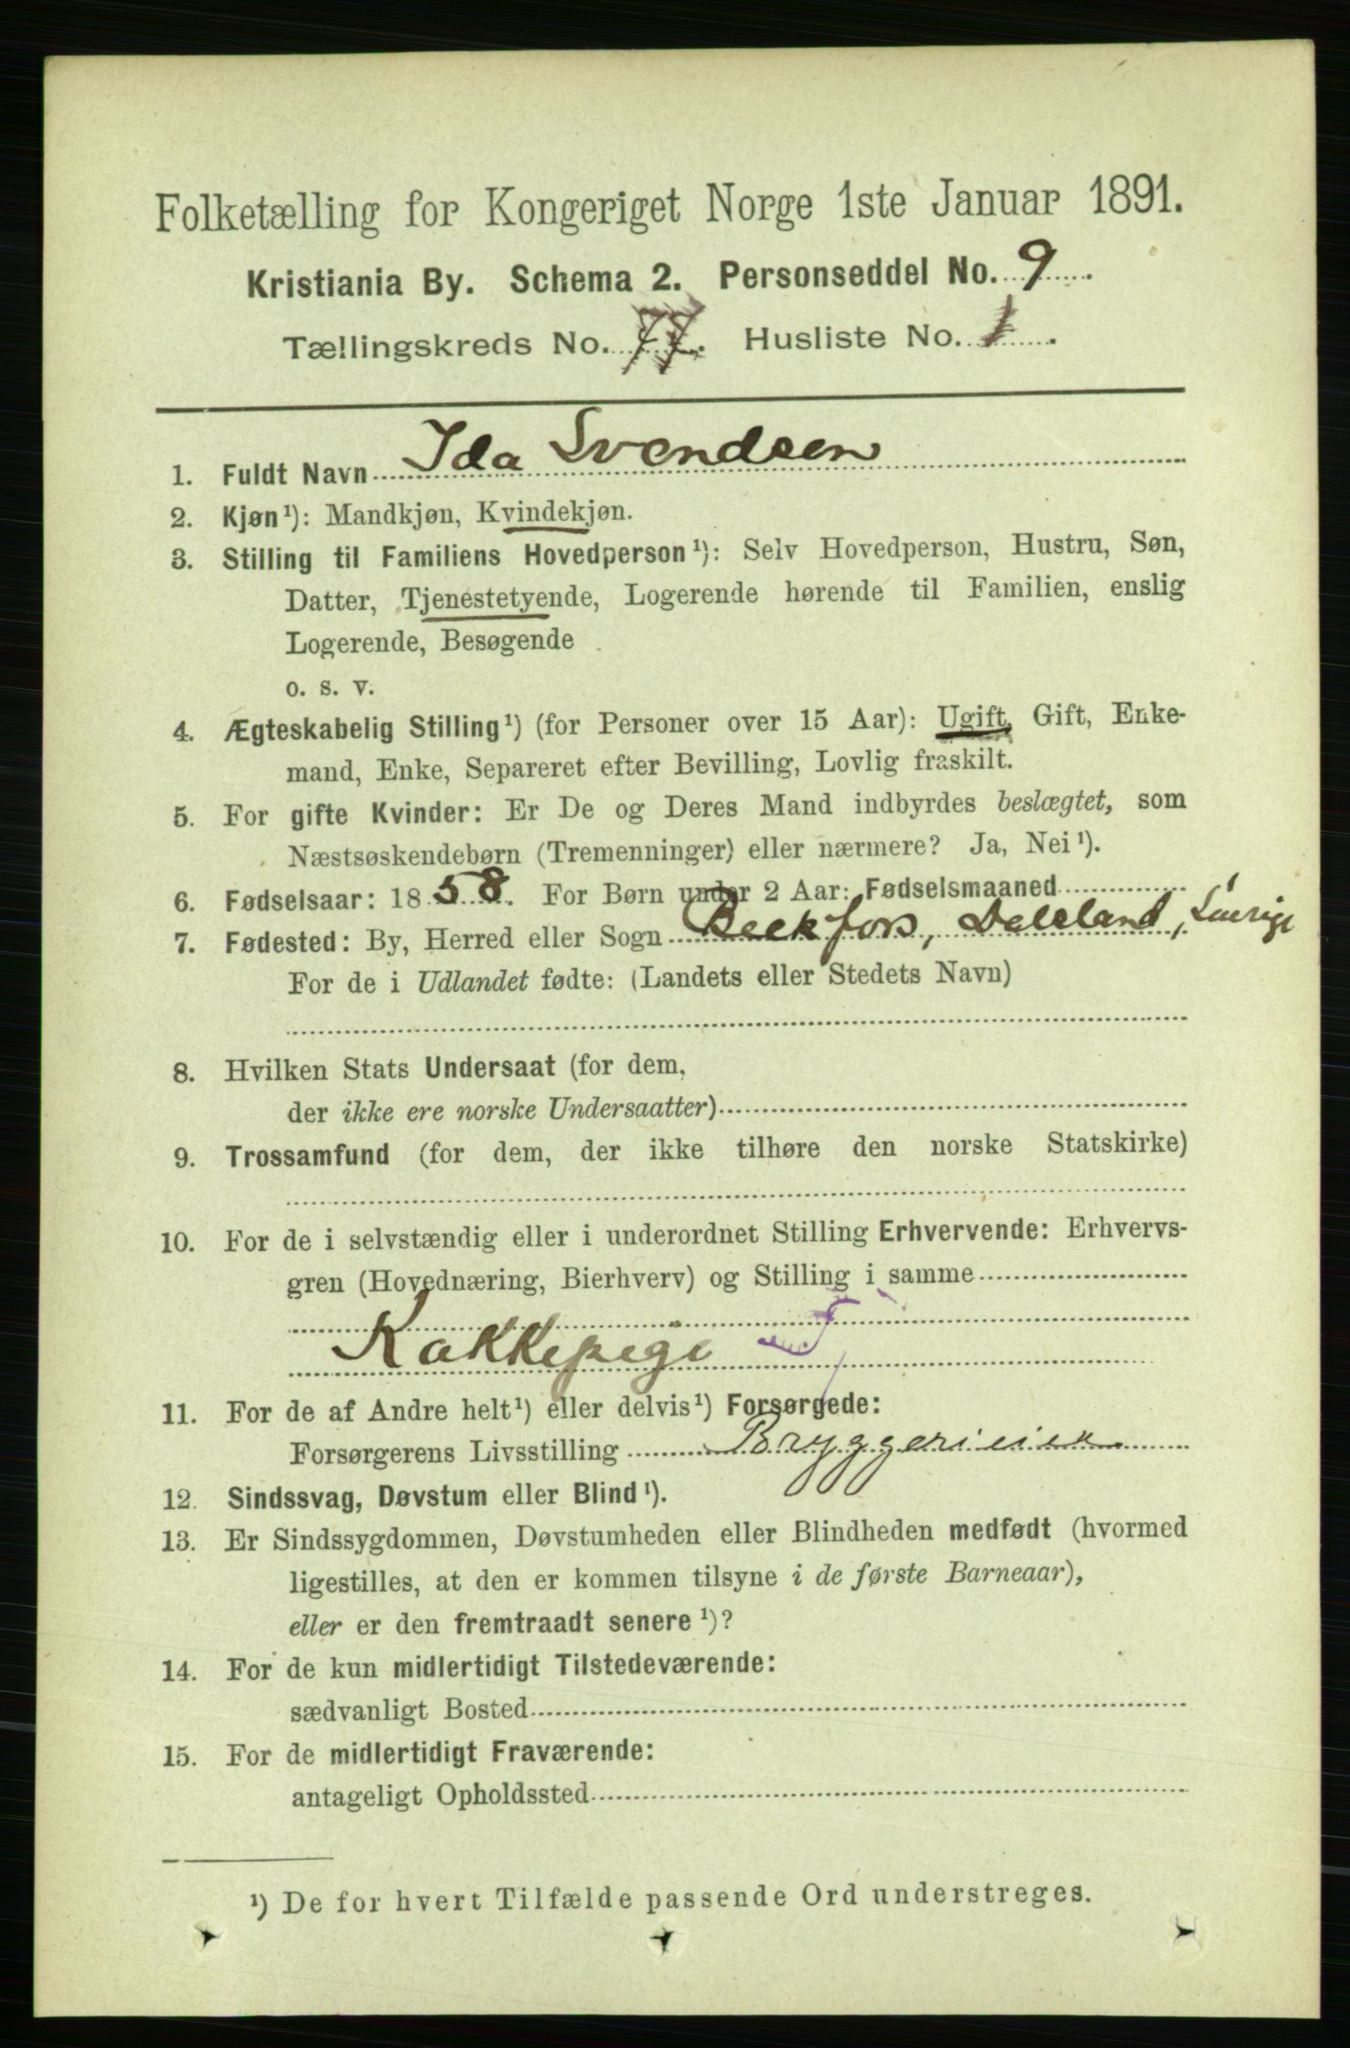 Folketælling for Kongeriget Norge 1ste Januar 1891.
Kristiania By. Schema 2. Personseddel No. 9.
Tællingskreds No. 77. Husliste No. 1.
1. Fuldt Navn Ida Svendsen
2. Kjøn¹): Mandkjøn, Kvindekjøn.
3. Stilling til Familiens Hovedperson¹): Selv Hovedperson, Hustru, Søn,
Datter, Tjenestetyende, Logerende hørende til Familien, enslig
Logerende, Besøgende
o. s. v.
4. Ægteskabelig Stilling¹) (for Personer over 15 Aar): Ugift, Gift, Enke-
mand, Enke, Separeret efter Bevilling, Lovlig fraskilt.
5. For gifte Kvinder: Er De og Deres Mand indbyrdes beslægtet, som
Næstsøskendebørn (Tremenninger) eller nærmere? Ja, Nei¹).
6. Fødselsaar: 1858. For Børn under 2 Aar: Fødselsmaaned
7. Fødested: By, Herred eller Sogn Beckfors, Dalsland, Sverige
For de i Udlandet fødte: (Landets eller Stedets Navn)
8. Hvilken Stats Undersaat (for dem,
der ikke ere norske Undersaatter)
9. Trossamfund (for dem, der ikke tilhøre den norske Statskirke)
10. For de i selvstændig eller i underordnet Stilling Erhvervende: Erhvervs-
gren (Hovednæring, Bierhverv) og Stilling i samme
Kokkepige
11. For de af Andre helt¹) eller delvis¹) Forsørgede:
Forsørgerens Livsstilling Bryggerieier
12. Sindssvag, Døvstum eller Blind¹).
13. Er Sindssygdommen, Døvstumheden eller Blindheden medfødt (hvormed
ligestilles, at den er kommen tilsyne i de første Barneaar),
eller er den fremtraadt senere¹)?
14. For de kun midlertidigt Tilstedeværende:
sædvanligt Bosted
15. For de midlertidigt Fraværende:
antageligt Opholdssted
¹) De for hvert Tilfælde passende Ord understreges.